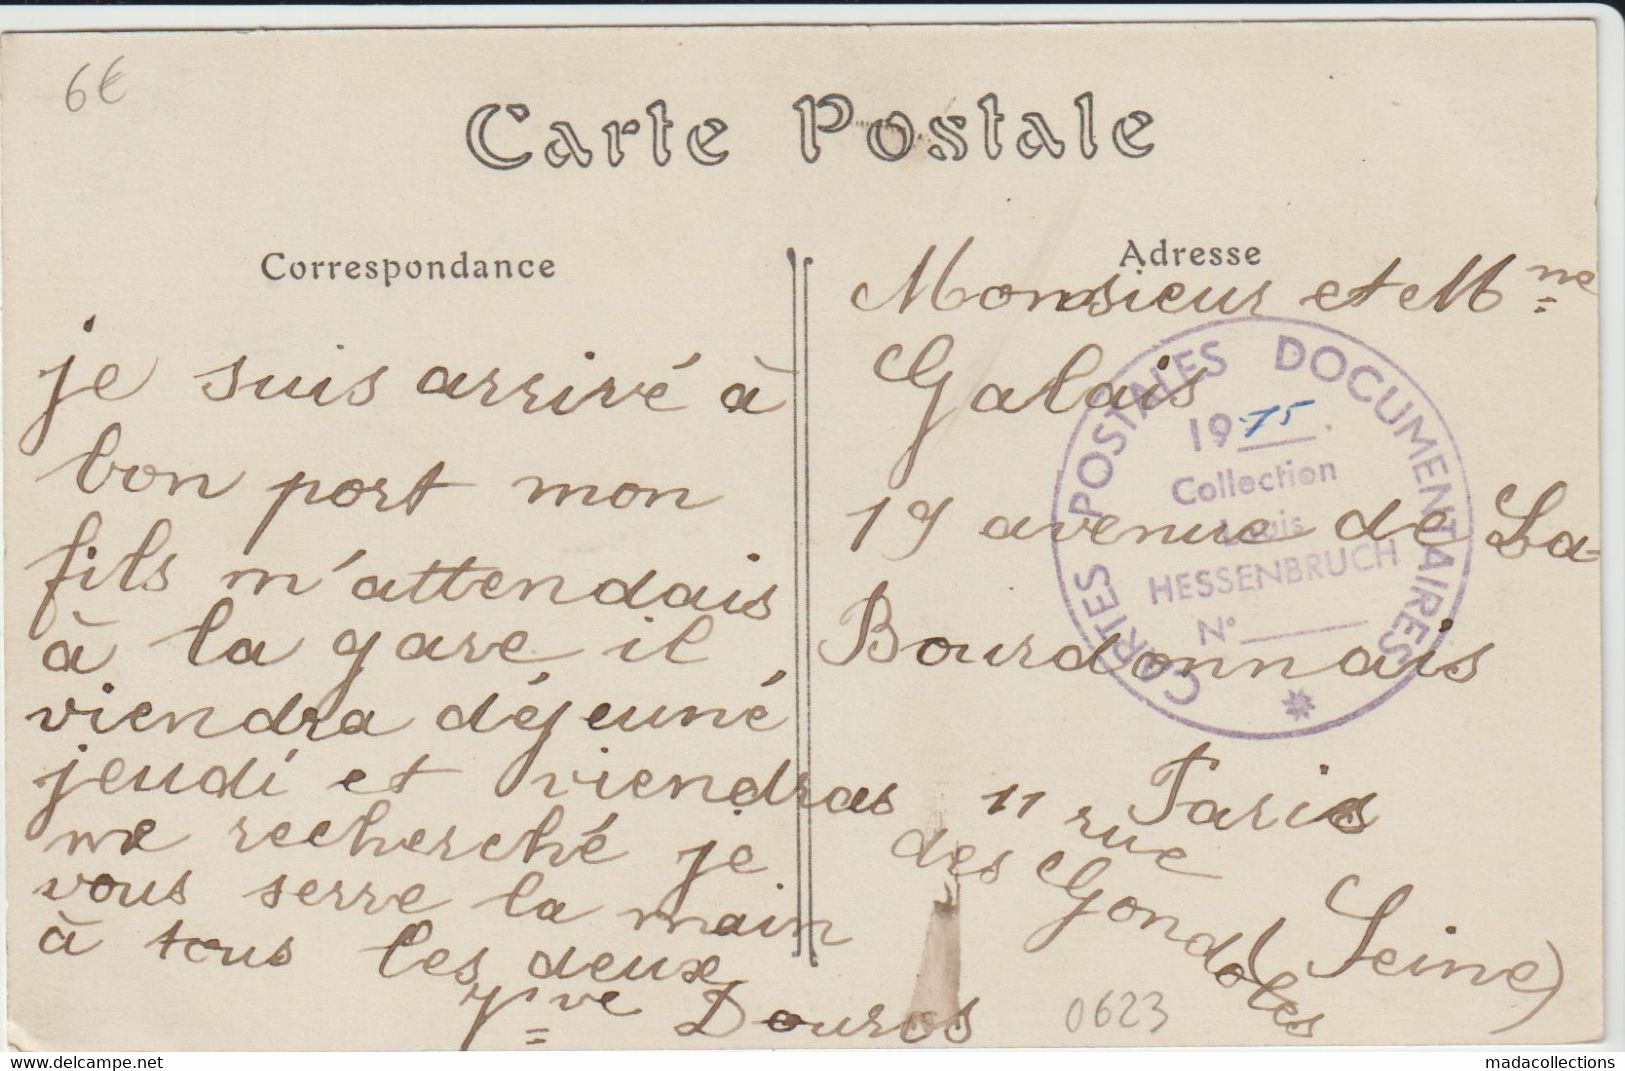 6€
Carte Postale
Correspondance
je suis arrivé à
bon port mon
fils m'attendais
à la gare il
viendra déjeuné
jeudi et viendras
me recherché je
vous serre la main
à tous les deux
Vve Douros
11 rue
des Gondoles
Adresse
Monsieur et Mme
Galais
19 avenue de La-
Bourdonnais
Paris
(Seine)
CARTES POSTALES DOCUMENTAIRES
1975
Collection
Louis
HESSENBRUCH
N°
0623
https://www.delcampe.net
madacollections